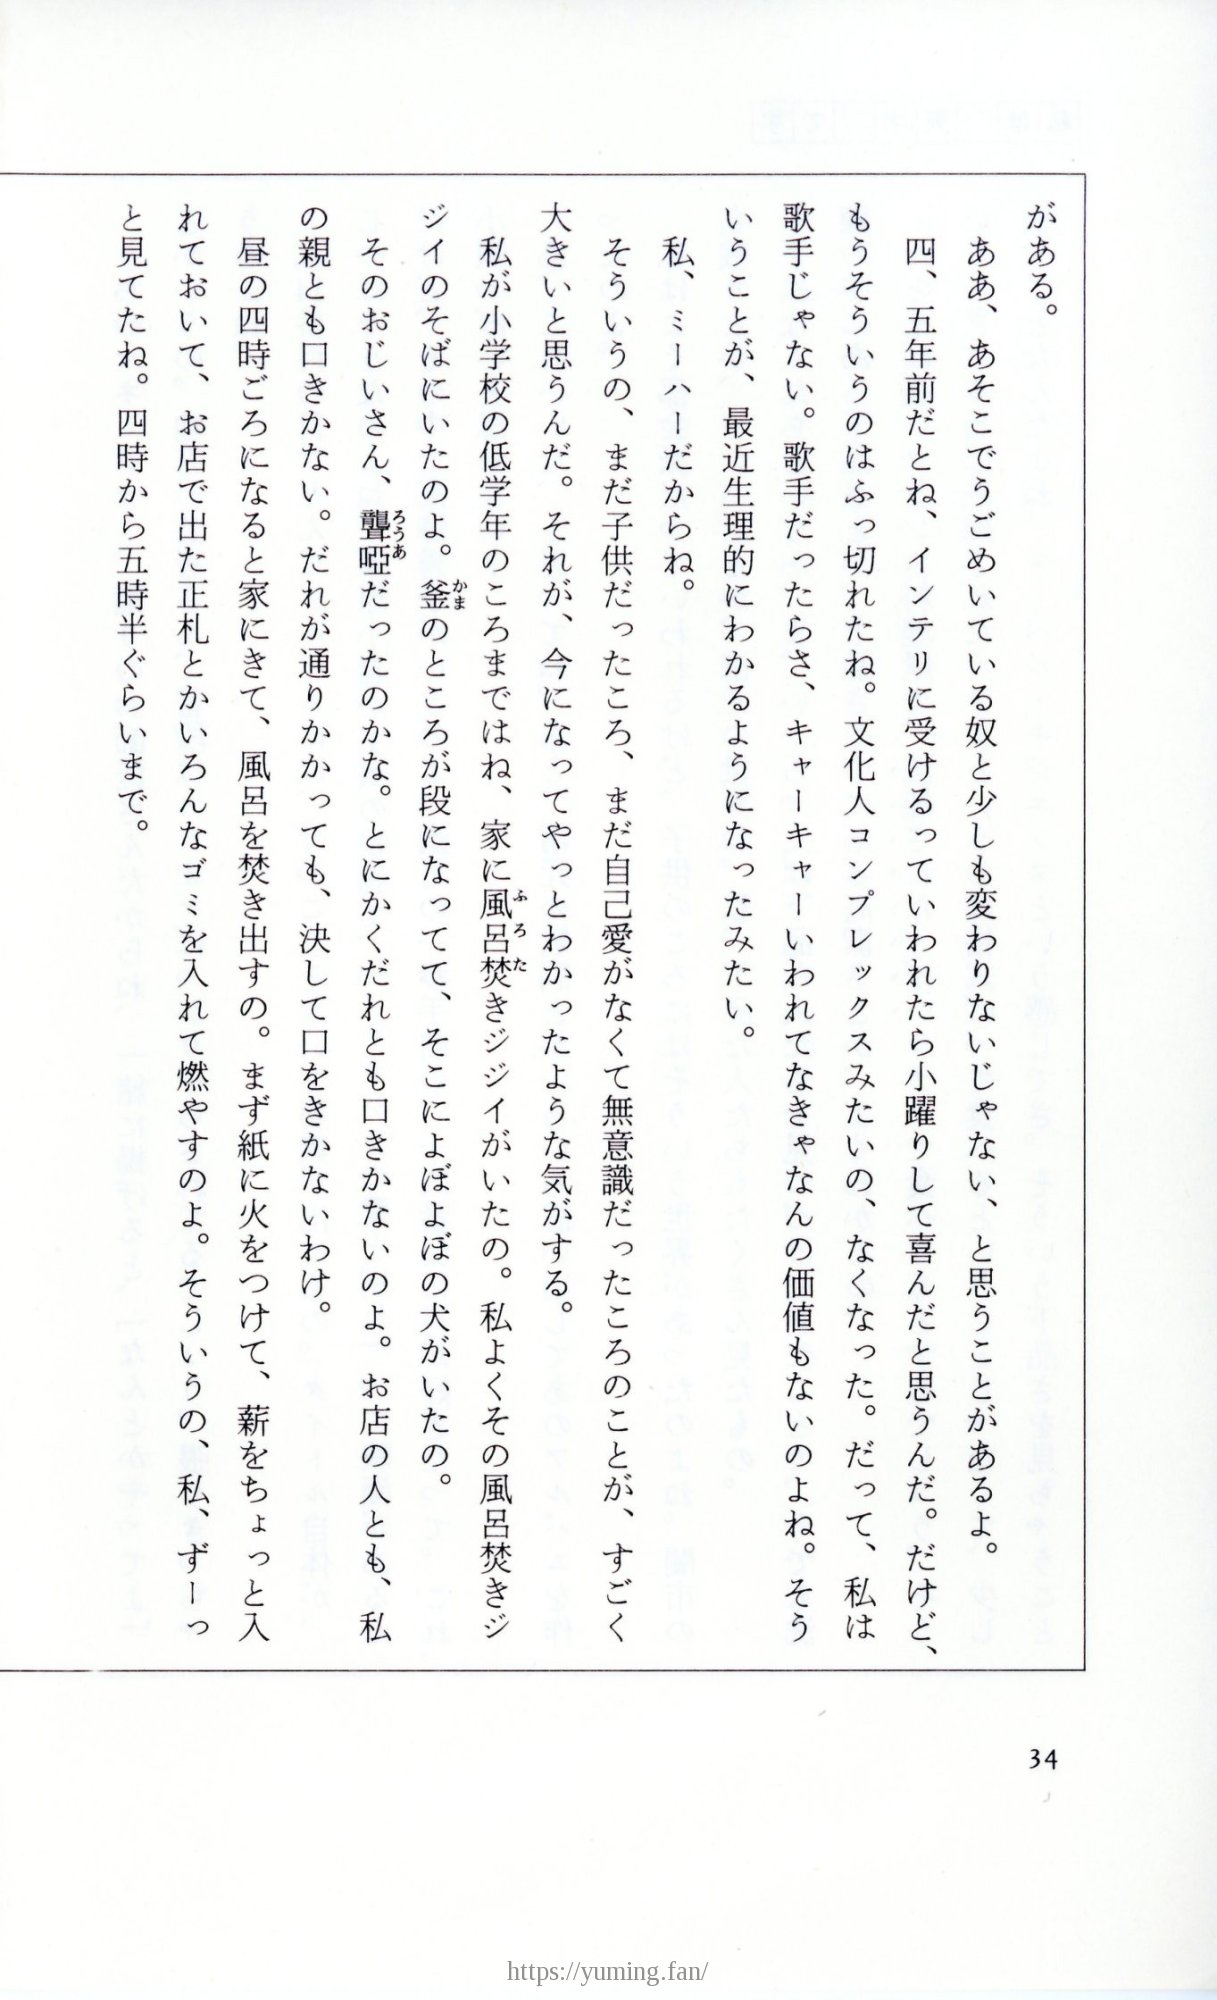 がある。
　ああ、あそこでうごめいている奴と少しも変わりないじゃない、と思うことがあるよ。
　四、五年前だとね、インテリに受けるっていわれたら小躍りして喜んだと思うんだ。だけど、
もうそういうのはふっ切れたね。文化人コンプレックスみたいの、なくなった。だって、私は
歌手じゃない。歌手だったらさ、キャーキャーいわれてなきゃなんの価値もないのよね。そう
いうことが、最近生理的にわかるようになったみたい。
　私、ミーハーだからね。
　そういうの、まだ子供だったころ、まだ自己愛がなくて無意識だったころのことが、すごく
大きいと思うんだ。それが、今になってやっとわかったような気がする。
　私が小学校の低学年のころまではね、家に風呂焚きジジイがいたの。私よくその風呂焚きジ
ジイのそばにいたのよ。釜のところが段になってて、そこによぼよぼの犬がいたの。
　そのおじいさん、聾啞だったのかな。とにかくだれとも口きかないのよ。お店の人とも、私
の親とも口きかない。だれが通りかかっても、決して口をきかないわけ。
　昼の四時ごろになると家にきて、風呂を焚き出すの。まず紙に火をつけて、薪をちょっと入
れておいて、お店で出た正札とかいろんなゴミを入れて燃やすのよ。そういうの、私、ずーっ
と見てたね。四時から五時半ぐらいまで。
34
https://yuming.fan/